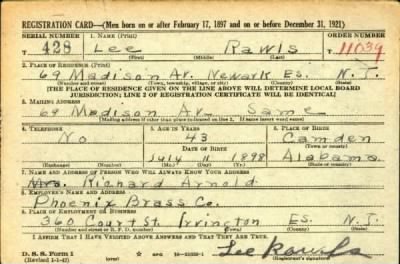 REGISTRATION CARD—(Men born on or after February 17, 1897 and on or before December 31, 1921)
SERIAL NUMBER 1. NAME (Print) ORDER NUMBER
T 428 Lee Rawls T11039
(First) (Middle) (Last)
2. PLACE OF RESIDENCE (Print)
69 Madison Av. Newark Es. N. J.
(Number and street) (Town, township, village, or city) (County) (State)
[THE PLACE OF RESIDENCE GIVEN ON THE LINE ABOVE WILL DETERMINE LOCAL BOARD
JURISDICTION; LINE 2 OF REGISTRATION CERTIFICATE WILL BE IDENTICAL]
3. MAILING ADDRESS
69 Madison Av Same
[Mailing address if other than place indicated on line 2. If same insert word same]
4. TELEPHONE 5. AGE IN YEARS 6. PLACE OF BIRTH
No 43 Camden
DATE OF BIRTH
July 11 1898 Alabama
7. NAME AND ADDRESS OF PERSON WHO WILL ALWAYS KNOW YOUR ADDRESS
Mrs. Richard Arnold
8. EMPLOYER'S NAME AND ADDRESS
Phoenix Brass Co.
9. PLACE OF EMPLOYMENT OR BUSINESS
360 Court St. Irvington Es. N. J.
(Number and street or R. F. D. number) (Town) (County) (State)
I AFFIRM THAT I HAVE VERIFIED ABOVE ANSWERS AND THAT THEY ARE TRUE.
D. S. S. Form 1
(Revised 1-1-42) (over) Lee Rawls